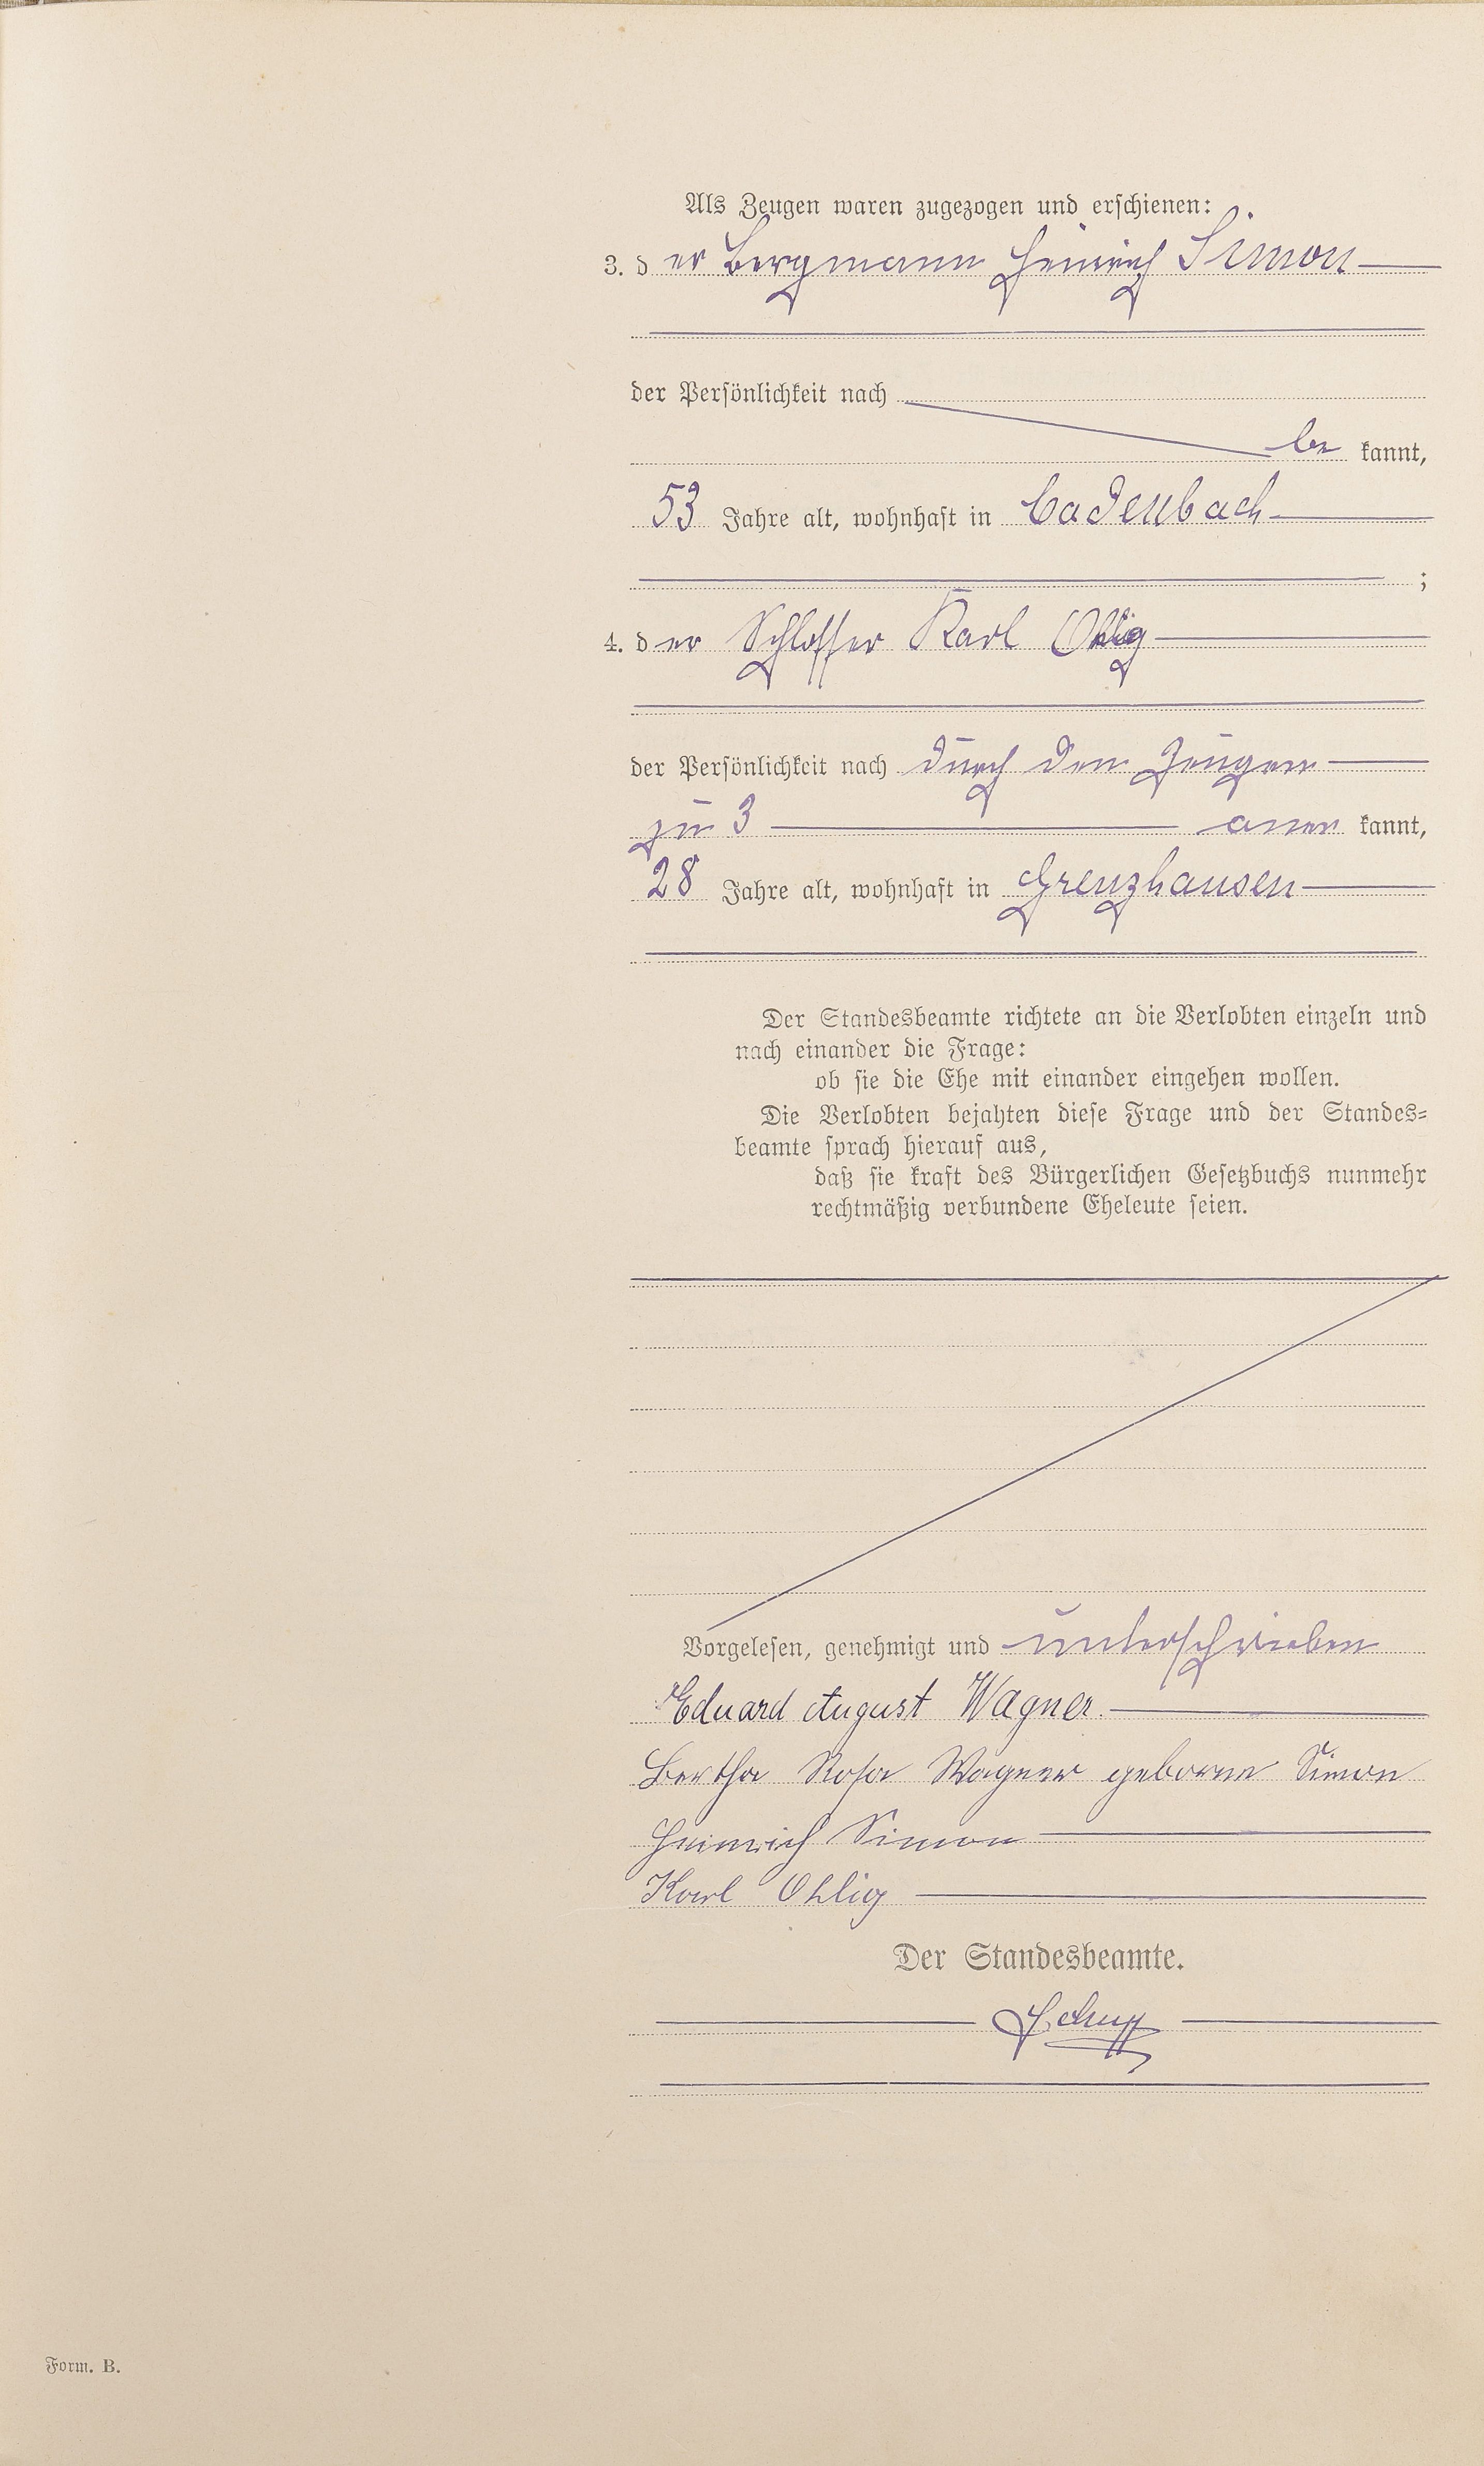 Als Zeugen waren zugezogen und erschienen:
3. der Bergmann Heinrich Simon
der Persönlichkeit nach
be kannt,
53 Jahre alt, wohnhaft in Cadenbach
;
4. der Schlosser Karl Ohlig
der Persönlichkeit nach durch den Zeugen
zu 3 aner kannt,
28 Jahre alt, wohnhaft in Grenzhausen
Der Standesbeamte richtete an die Verlobten einzeln und
nach einander die Frage:
ob sie die Ehe mit einander eingehen wollen.
Die Verlobten bejahten diese Frage und der Standes=
beamte sprach hierauf aus,
daß sie kraft des Bürgerlichen Gesetzbuchs nunmehr
rechtmäßig verbundene Eheleute seien.
Vorgelesen, genehmigt und unterschrieben
Eduard August Wagner.
Bertha Rosa Wagner geborne Simon
Heinrich Simon
Karl Ohlig
Der Standesbeamte.
Form. B.